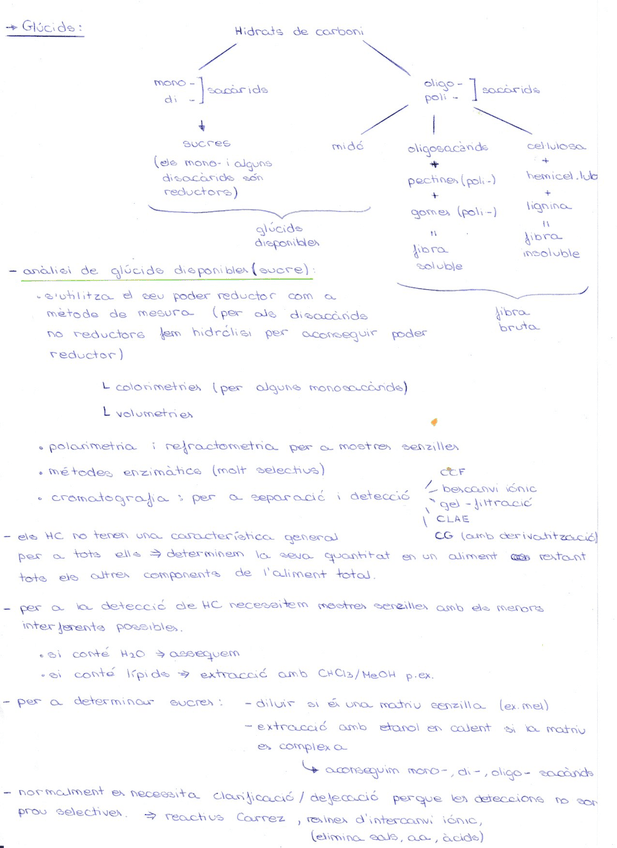 → Glúcids:
Hidrats de carboni
mono-
di-
] sacàrids
oligo-
poli-
] sacàrids
sucres
(els mono- i alguns
disacàrids són
reductors)
midó
oligosacàrids
+
pectines (poli-)
+
gomes (poli-)
=
fibra
soluble
cel·lulosa
+
hemicel.lub
+
lignina
=
fibra
insoluble
glúcids
disponibles
fibra
bruta
- anàlisi de glúcids disponibles (sucre):
• s'utilitza el seu poder reductor com a
mètode de mesura (per als disacàrids
no reductors fem hidròlisi per aconseguir poder
reductor)
└ colorimetries (per alguns monosacàrids)
└ volumetries
• polarimetria i refractometria per a mostres senzilles
• mètodes enzimàtics (molt selectius)
• cromatografia: per a separació i detecció
CCF
bescanvi iònic
gel-filtració
CLAE
CG (amb derivatització)
- els HC no tenen una característica general
per a tots ells ⇒ determinem la seva quantitat en un aliment restant
tots els altres components de l'aliment total.
- per a la detecció de HC necessitem mostres senzilles amb els menors
interferents possibles.
• si conté H2O ⇒ assequem
• si conté lípids ⇒ extracció amb CHCl3/MeOH p.ex.
- per a determinar sucres: - diluir si és una matriu senzilla (ex. mel)
- extracció amb etanol en calent si la matriu
es complexa
↳ aconseguim mono-, di-, oligo- sacàrids
- normalment es necessita clarificació / defecació perque les deteccions no son
prou selectives. ⇒ reactius Carrez, resines d'intercanvi iònic,
(elimina sals, aa, àcids)